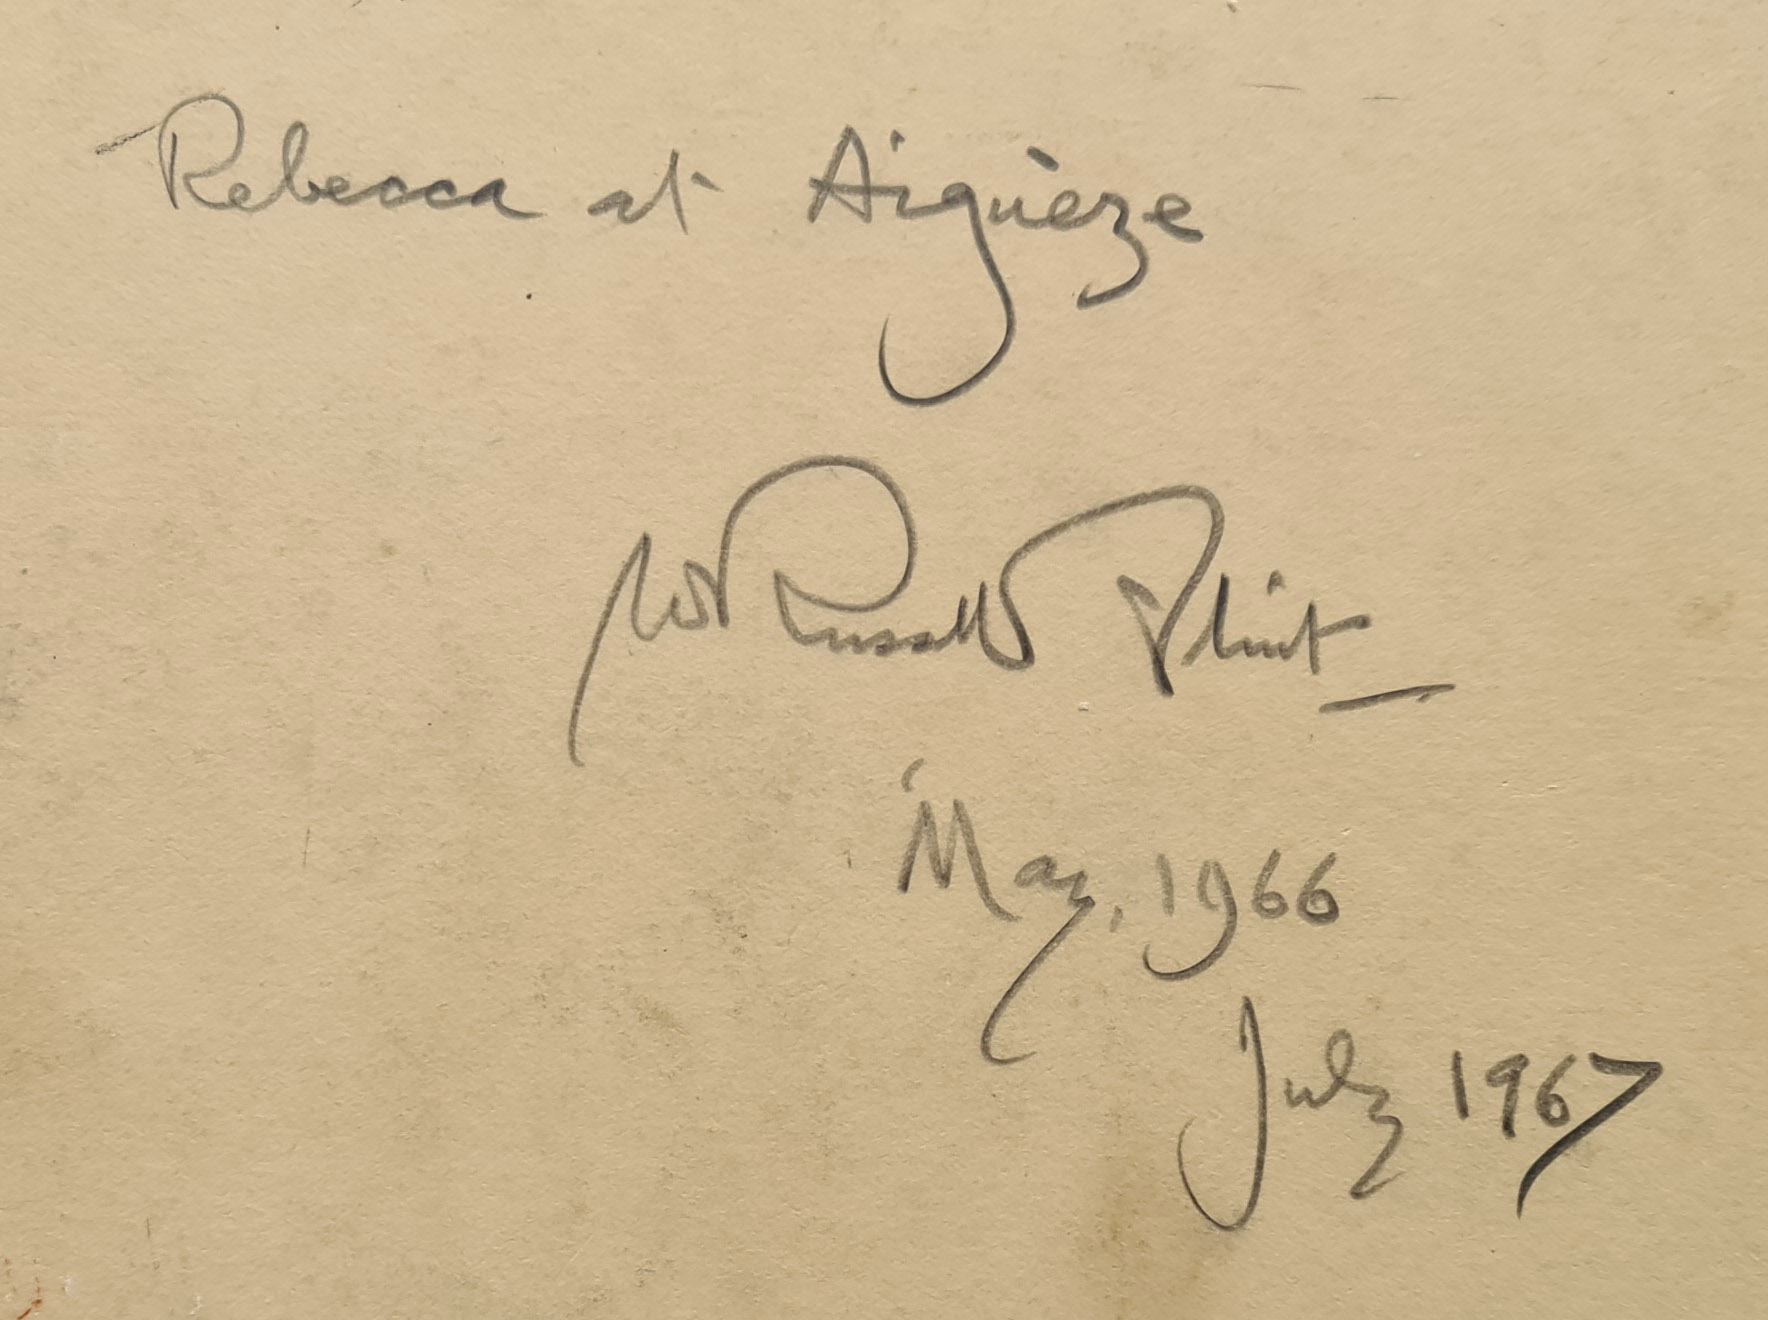 Rebecca at Aiguèze
W Russell Flint
May, 1966
July 1967